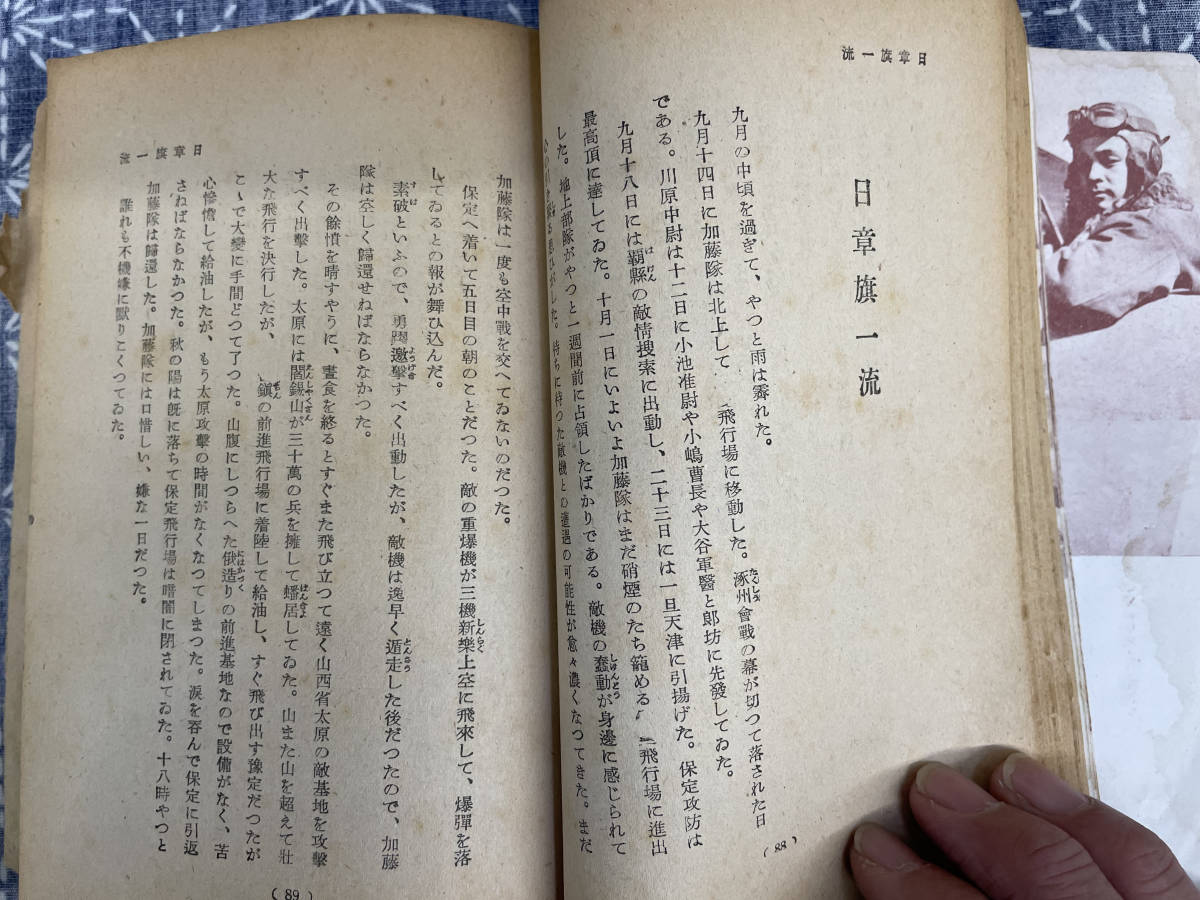 日章旗一流
日章旗一流
九月の中頃を過ぎて、やつと雨は霽れた。
九月十四日に加藤隊は北上して　飛行場に移動した。涿州會戰の幕が切つて落された日
である。川原中尉は十二日に小池准尉や小嶋曹長や大谷軍醫と郎坊に先發してゐた。
九月十八日には覇縣の敵情搜索に出動し、二十三日には一旦天津に引揚げた。保定攻防は
最高頂に達してゐた。十月一日にいよいよ加藤隊はまだ硝煙のたち籠める　飛行場に進出
した。地上部隊がやつと一週間前に占領したばかりである。敵機の蠢動が身邊に感じられて
待ちに待つた敵機との遭遇の可能性が愈々濃くなつてきた。まだ
(88)
加藤隊は一度も空中戰を交へてゐないのだつた。
保定へ着いて五日目の朝のことだつた。敵の重爆機が三機新樂上空に飛來して、爆彈を落
してゐるとの報が舞ひ込んだ。
素破といふので、勇躍邀擊すべく出動したが、敵機は逸早く遁走した後だつたので、加藤
隊は空しく歸還せねばならなかつた。
その餘憤を晴すやうに、晝食を終るとすぐまた飛び立つて遠く山西省太原の敵基地を攻擊
すべく出擊した。太原には閻錫山が三十萬の兵を擁して蟠居してゐた。山また山を超えて壯
大な飛行を決行したが、　鎭の前進飛行場に着陸して給油し、すぐ飛び出す豫定だつたが
こゝで大變に手間どつて了つた。山腹にしつらへた俄造りの前進基地なので設備がなく、苦
心慘憺して給油したが、もう太原攻擊の時間がなくなつてしまつた。淚を呑んで保定に引返
さねばならなかつた。秋の陽は旣に落ちて保定飛行場は暗闇に閉されてゐた。十八時やつと
加藤隊は歸還した。加藤隊には口惜しい、嫌な一日だつた。
誰れも不機嫌に默りこくつてゐた。
日章旗一流
(89)